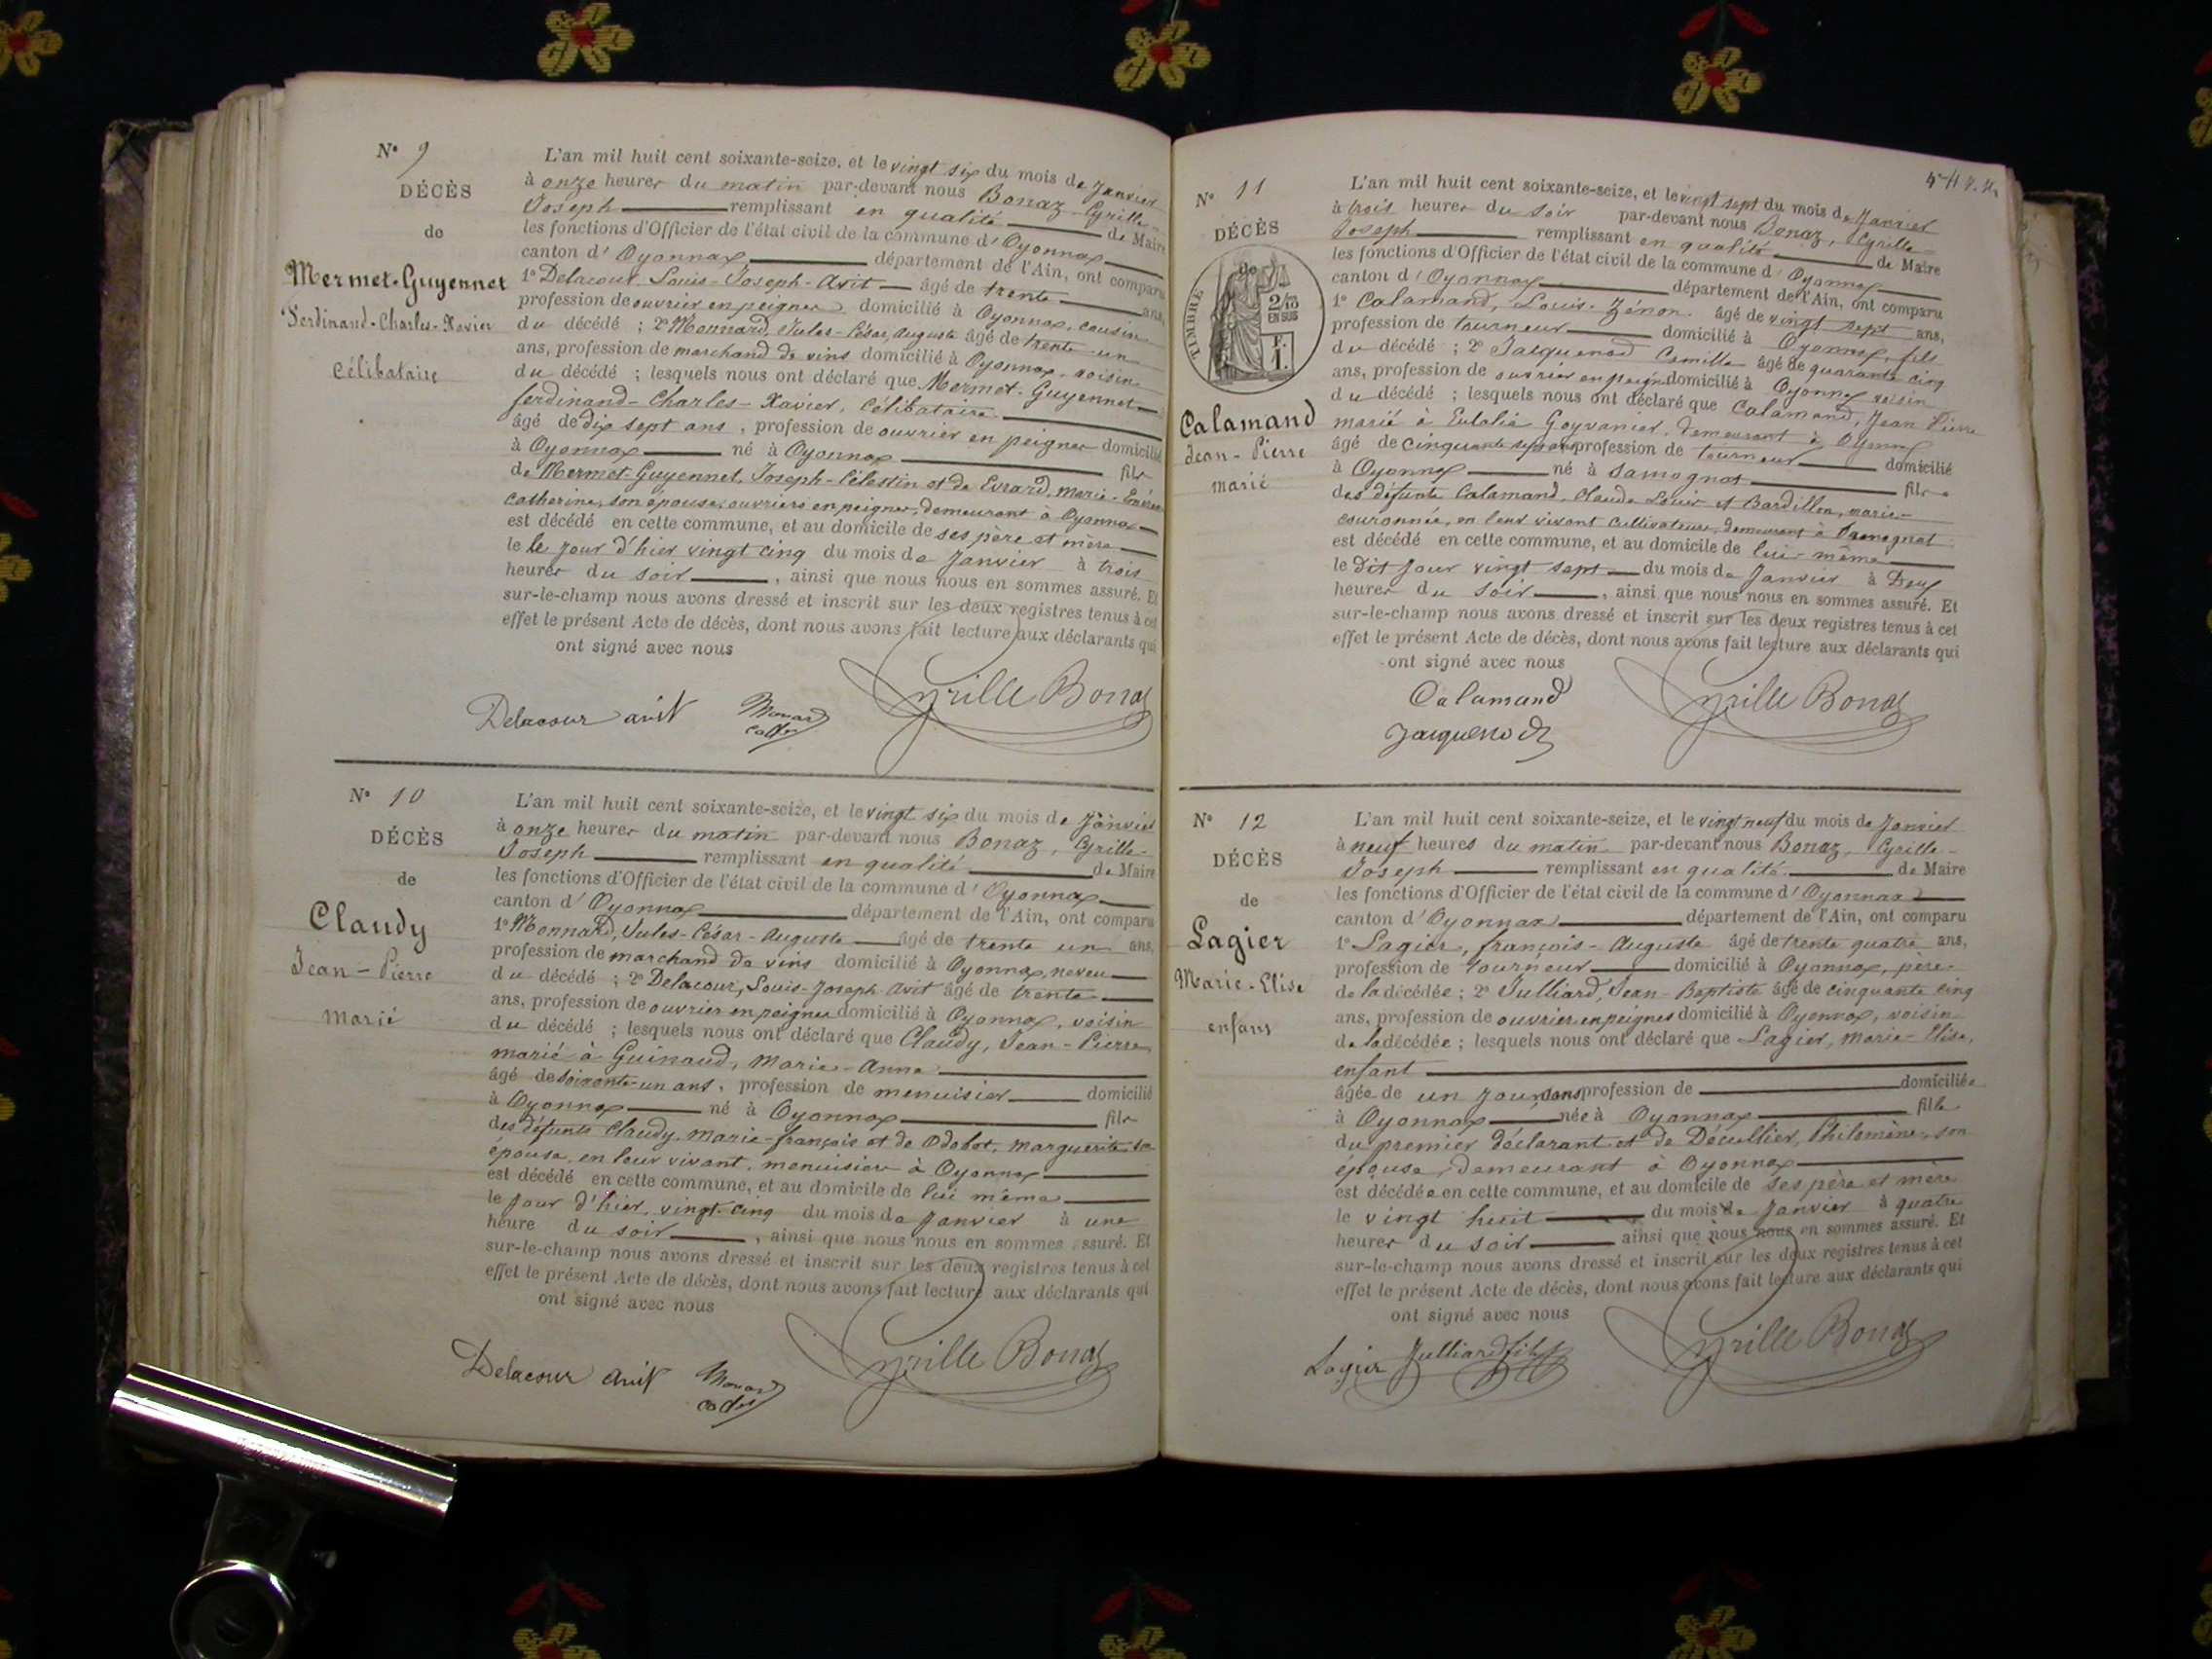 N° 9
DÉCÈS
de
Mermet-Guyennet
Ferdinand-Charles-Xavier
Célibataire
L'an mil huit cent soixante-seize, et le vingt six du mois de Janvier
à onze heures du matin par-devant nous Bonaz Cyrille-
Joseph remplissant en qualité de Maire
les fonctions d'Officier de l'état civil de la commune d'Oyonnax
canton d'Oyonnax département de l'Ain, ont comparu
1° Delacour Louis-Joseph-Avit âgé de trente ans,
profession de ouvrier en peignes domicilié à Oyonnax, cousin
du décédé ; 2° Monnard, Jules-César, Auguste âgé de trente-un
ans, profession de marchand de vins domicilié à Oyonnax, voisin
du décédé ; lesquels nous ont déclaré que Mermet-Guyennet
ferdinand-Charles-Xavier, Célibataire
âgé de dix sept ans, profession de ouvrier en peignes domicilié
à Oyonnax né à Oyonnax fils
de Mermet-Guyennet, Joseph-Célestin et de Evrard, Marie-
Catherine, son épouse, ouvriers en peignes, demeurant à Oyonnax
est décédé en cette commune, et au domicile de ses père et mère
le le jour d'hier vingt cinq du mois de Janvier à trois
heures du soir, ainsi que nous nous en sommes assuré. Et
sur-le-champ nous avons dressé et inscrit sur les deux registres tenus à cet
effet le présent Acte de décès, dont nous avons fait lecture aux déclarants qui
ont signé avec nous
Delacour avit Cyrille Bonaz
N° 10
DÉCÈS
de
Claudy
Jean-Pierre
Marié
L'an mil huit cent soixante-seize, et le vingt six du mois de Janvier
à onze heures du matin par-devant nous Bonaz, Cyrille-
Joseph remplissant en qualité de Maire
les fonctions d'Officier de l'état civil de la commune d'Oyonnax
canton d'Oyonnax département de l'Ain, ont comparu
1° Monnard, Jules-César-Auguste âgé de trente un ans,
profession de marchand de vins domicilié à Oyonnax, neveu
du décédé ; 2° Delacour, Louis-Joseph Avit âgé de trente
ans, profession de ouvrier en peignes domicilié à Oyonnax, voisin
du décédé ; lesquels nous ont déclaré que Claudy, Jean-Pierre
marié à Guinaud, Marie-Anne
âgé de soixante-un ans, profession de menuisier domicilié
à Oyonnax né à Oyonnax fils
des défunts Claudy, Marie-françois et de Odobet, Marguerite sa
épouse, en leur vivant, menuisier à Oyonnax
est décédé en cette commune, et au domicile de lui même
le jour d'hier, vingt-cinq du mois de Janvier à une
heure du soir, ainsi que nous nous en sommes assuré. Et
sur-le-champ nous avons dressé et inscrit sur les deux registres tenus à cet
effet le présent Acte de décès, dont nous avons fait lecture aux déclarants qui
ont signé avec nous
Delacour avit Cyrille Bonaz
N° 11
DÉCÈS
de
TIMBRE
2/10
EN SUS
F.
1.
Calamand
Jean-Pierre
marié
L'an mil huit cent soixante-seize, et le vingt sept du mois de Janvier
à trois heures du soir par-devant nous Bonaz, Cyrille
Joseph remplissant en qualité de Maire
les fonctions d'Officier de l'état civil de la commune d'Oyonnax
canton d'Oyonnax département de l'Ain, ont comparu
1° Calamand, Louis-Zénon âgé de vingt sept ans,
profession de tourneur domicilié à Oyonnax, fils
du décédé ; 2° Jacquenod Camille âgé de quarante cinq
ans, profession de ouvrier en peignes domicilié à Oyonnax voisin
du décédé ; lesquels nous ont déclaré que Calamand, Jean Pierre
marié à Eulalie demeurant à Oyonnax
âgé de cinquante sept ans profession de tourneur domicilié
à Oyonnax né à Samognat fils
des défunts Calamand, Claude Louis et Bardillon, marie-
couronnée, en leur vivant cultivateurs, demeurant à Samognat
est décédé en cette commune, et au domicile de lui-même
le dit jour vingt sept du mois de Janvier à Deux
heures du soir, ainsi que nous nous en sommes assuré. Et
sur-le-champ nous avons dressé et inscrit sur les deux registres tenus à cet
effet le présent Acte de décès, dont nous avons fait lecture aux déclarants qui
ont signé avec nous
Calamand Cyrille Bonaz
Jacquenod
N° 12
DÉCÈS
de
Lagier
Marie-Elise
enfant
L'an mil huit cent soixante-seize, et le vingt neuf du mois de Janvier
à neuf heures du matin par-devant nous Bonaz, Cyrille-
Joseph remplissant en qualité de Maire
les fonctions d'Officier de l'état civil de la commune d'Oyonnax
canton d'Oyonnax département de l'Ain, ont comparu
1° Lagier, françois-Auguste âgé de trente quatre ans,
profession de tourneur domicilié à Oyonnax, père
de la décédée ; 2° Julliard, Jean-Baptiste âgé de cinquante cinq
ans, profession de ouvrier en peignes domicilié à Oyonnax, voisin
de la décédée ; lesquels nous ont déclaré que Lagier, Marie-Elise,
enfant
âgée de un jour ans profession de domiciliée
à Oyonnax née à Oyonnax fille
du premier déclarant et de Décullier, Philomène, son
épouse, demeurant à Oyonnax
est décédée en cette commune, et au domicile de ses père et mère
le vingt huit du mois de Janvier à quatre
heures du soir ainsi que nous nous en sommes assuré. Et
sur-le-champ nous avons dressé et inscrit sur les deux registres tenus à cet
effet le présent Acte de décès, dont nous avons fait lecture aux déclarants qui
ont signé avec nous
Lagier Julliard fils Cyrille Bonaz